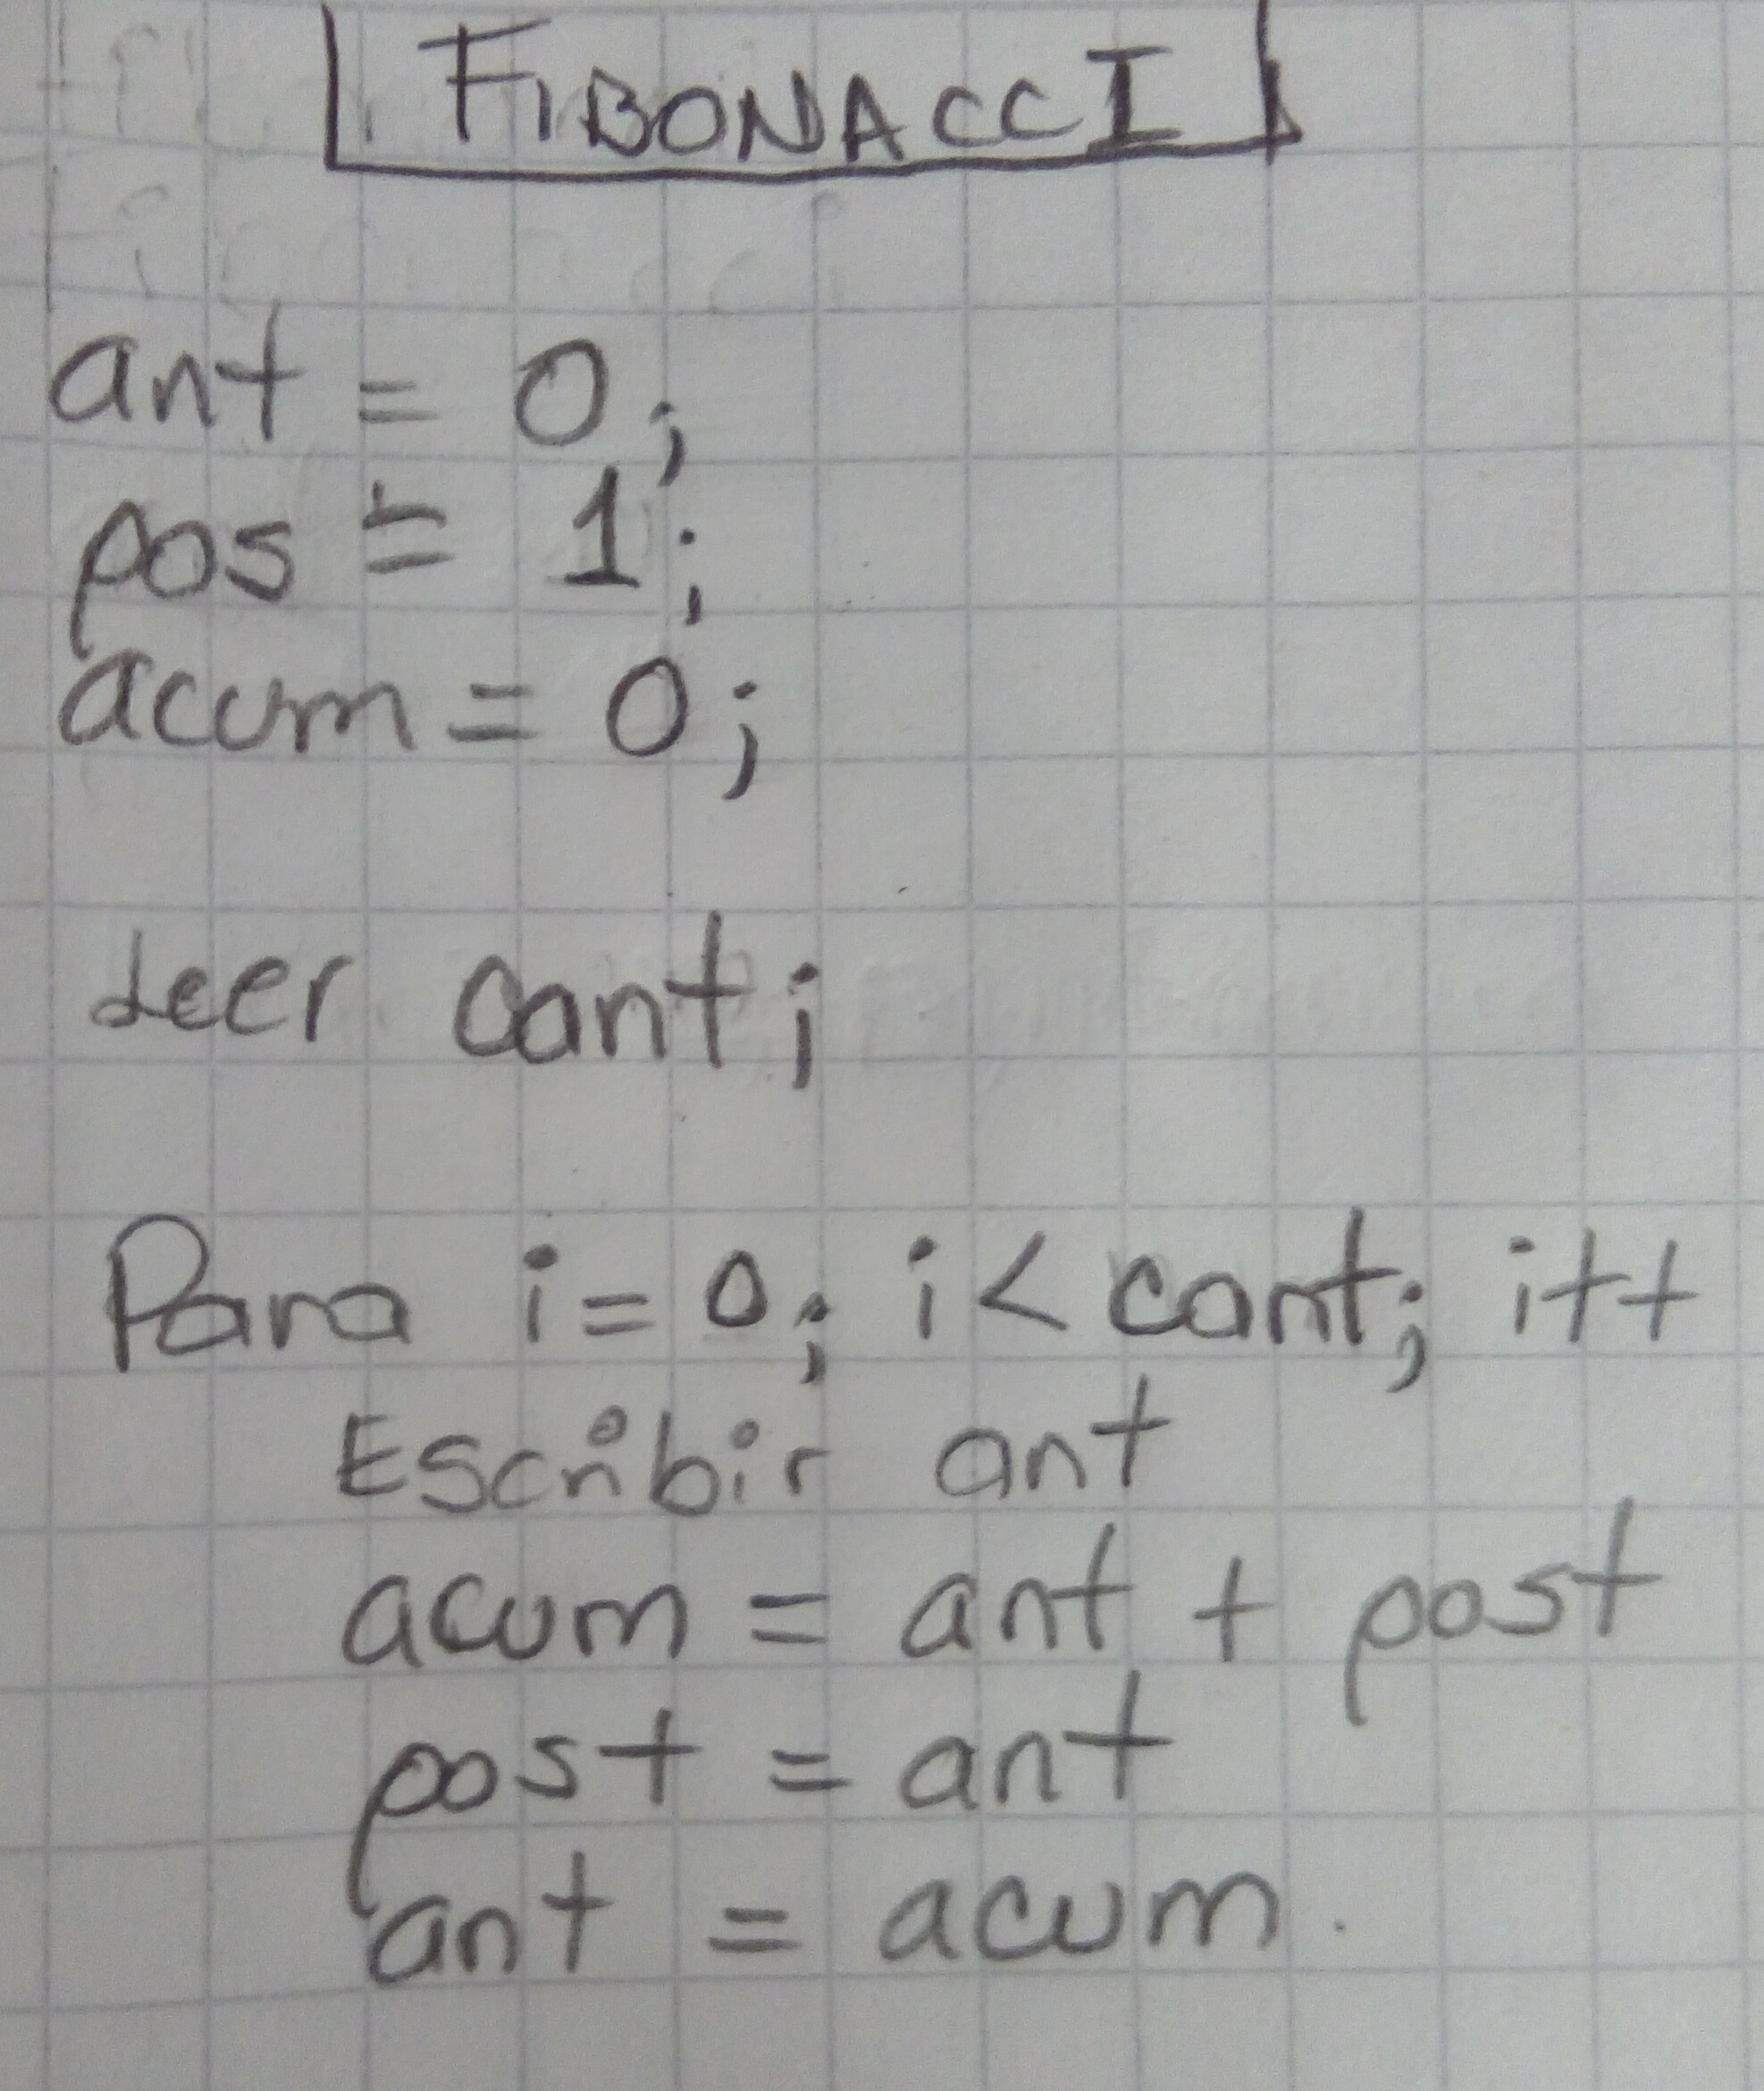 FIBONACCI
ant = 0;
pos = 1;
acum = 0;
Leer cant;
Para i = 0; i < cant; i++
Escribir ant
acum = ant + post
post = ant
ant = acum.